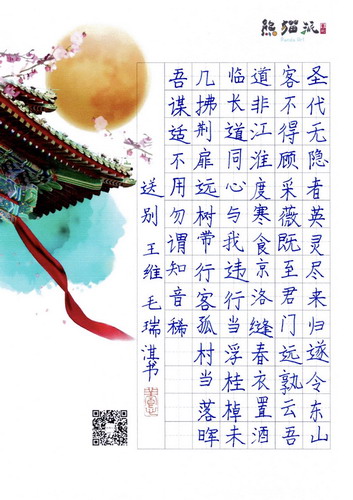 熊猫
圣代无隐者英灵尽来归遂令东山
客不得顾采薇既至君门远孰云吾
道非江淮度寒食京洛缝春衣置酒
临长道同心与我违行当浮桂棹未
几拂荆扉远树带行客孤村当落晖
吾谋适不用勿谓知音稀
送别 王维 毛瑞淇书